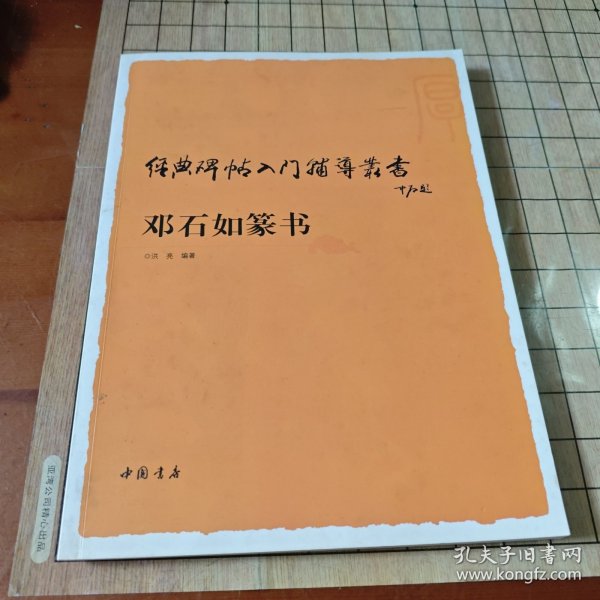 经典碑帖入门辅导叢書
邓石如篆书
◎洪 亮 编著
中国书店
亚湾公司精心出品
孔夫子旧书网
www.kongfz.com